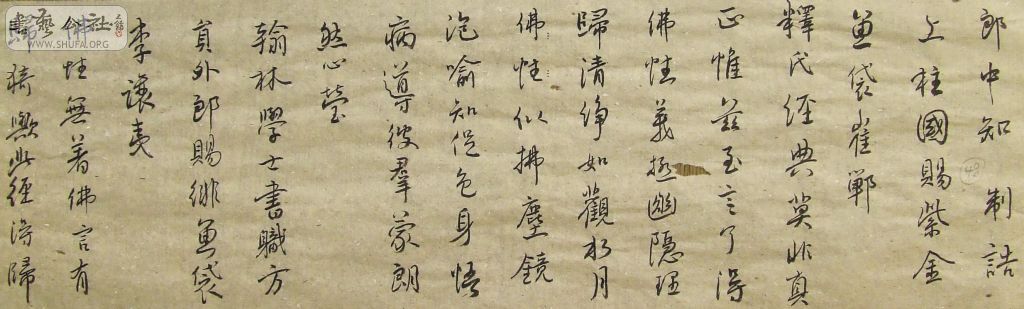 郎中知 制誥
上柱國賜紫金
魚袋崔鄲
釋氏經典莫非真
正惟茲至言了得
佛性義極幽隱理
歸清淨如觀水月
佛性似拂塵鏡
泡喻知促色身悟
病導彼羣蒙朗
然心瑩
翰林學士書職方
員外郎賜緋魚袋
李讓夷
佛性無著佛言有
猗歟此經得歸
48
書藝公社
WWW.SHUFA.ORG